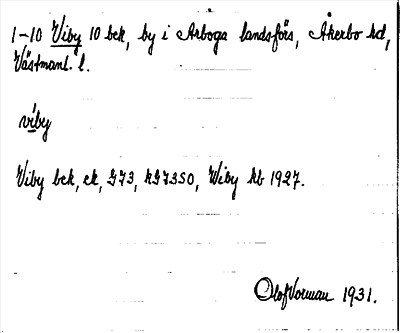 1-10 Viby 10 bek, by i Arboga landsförs, Åkerbo hd,
Västmanl. l.
viby
Viby bek, ek, G73, KG73SO, Wiby kb 1927.
Olof Vorman 1931.